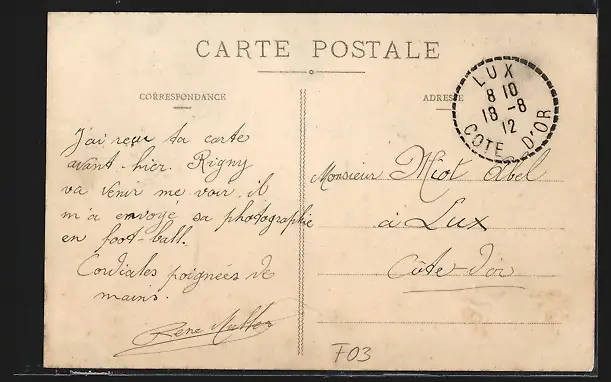 CARTE POSTALE
CORRESPONDANCE
ADRESSE
LUX
8 10
18 -8
12
COTE D'OR
J'ai reçu ta carte
avant-hier. Rigny
va venir me voir, il
m'a envoyé sa photographie
en foot-ball.
Cordiales poignées de
mains.
René
Monsieur Miot Abel
à Lux
Côte-d'or
F03